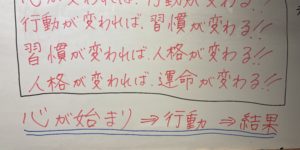 心が変われば、行動が変わる!!
行動が変われば、習慣が変わる!!
習慣が変われば、人格が変わる!!
人格が変われば、運命が変わる!!
心が始まり⇒行動⇒結果